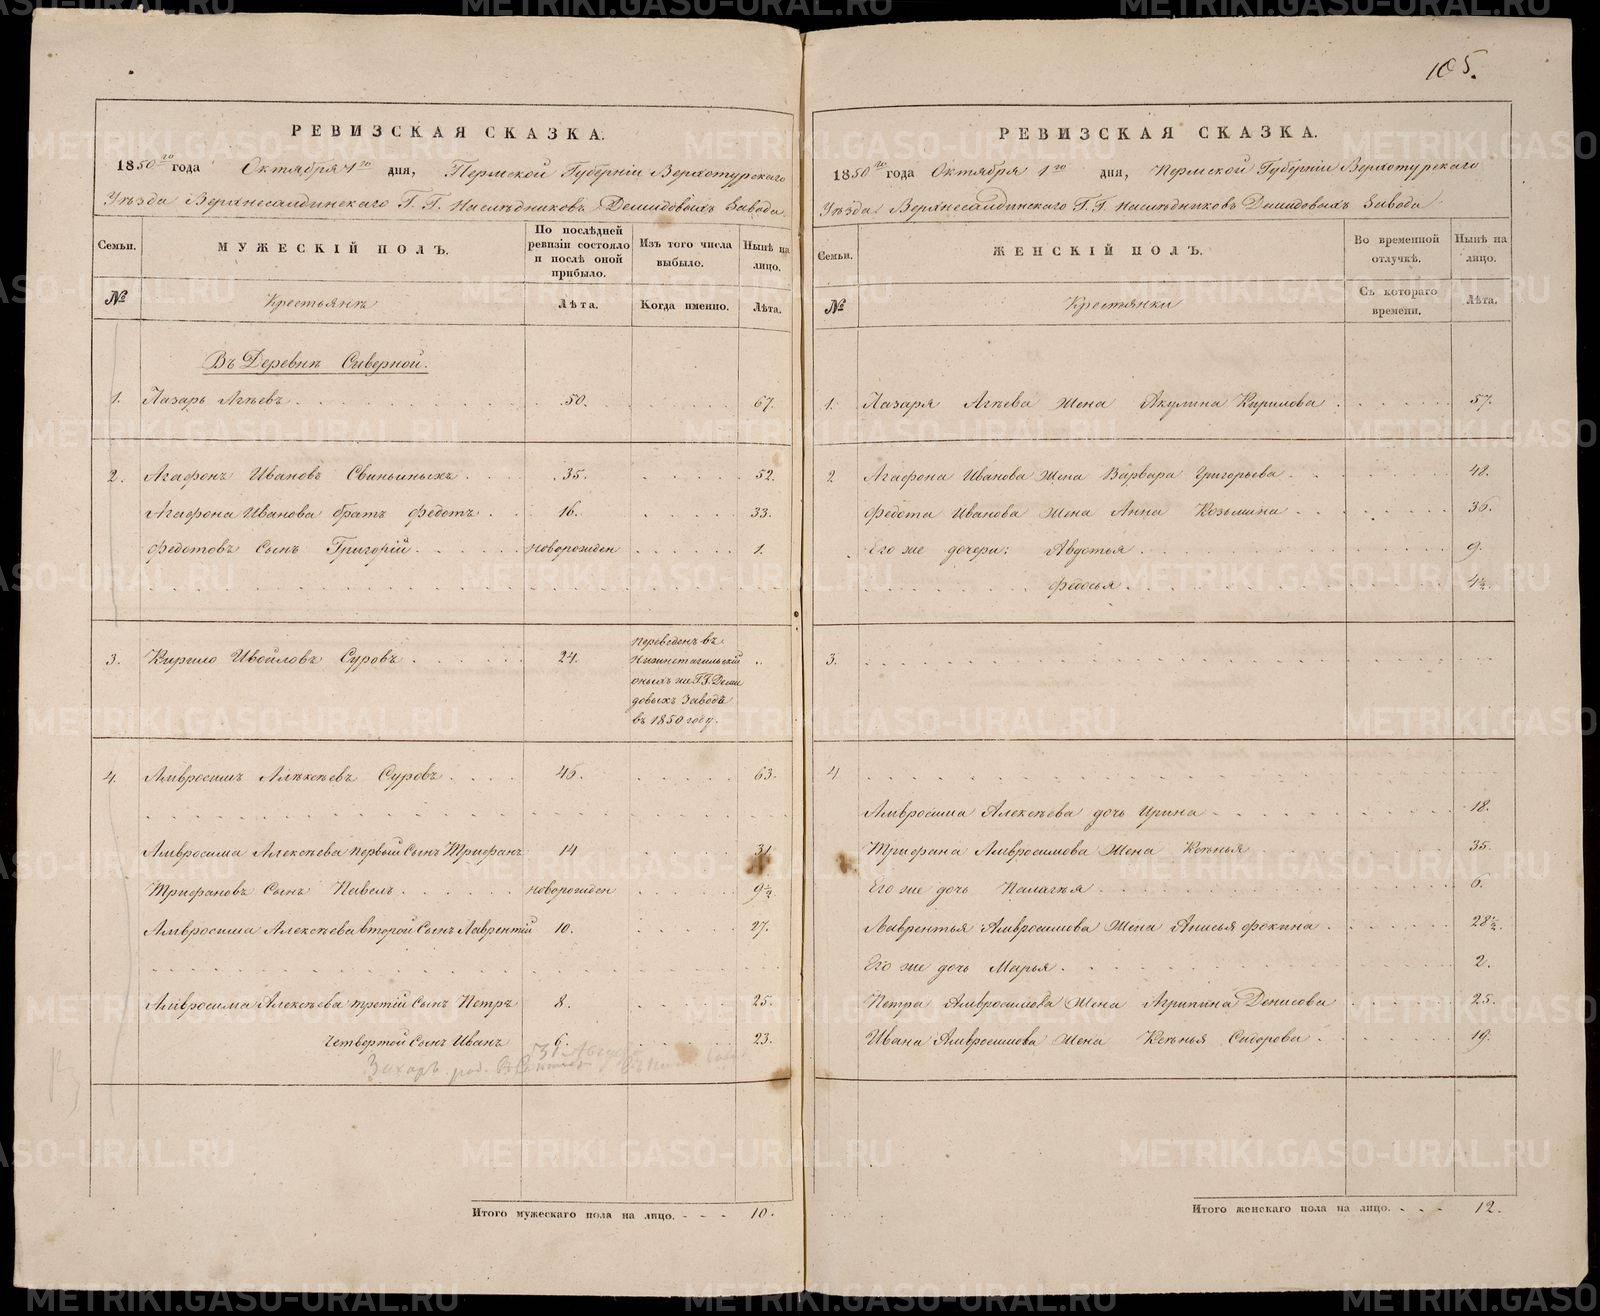 105.
РЕВИЗСКАЯ СКАЗКА.
1850го года Октября 1го дня, Пермской Губерніи Верхотурскаго
Уѣзда Верхнесалдинскаго Г.Г. Наслѣдниковъ Демидовыхъ Завода
Семьи.
МУЖЕСКІЙ ПОЛЪ.
По послѣдней ревизіи состояло и послѣ оной прибыло.
Изъ того числа выбыло.
Нынѣ на лицо.
№
Крестьянъ
Лѣта.
Когда именно.
Лѣта.
Въ Деревнѣ Сѣверной.
1. Лазарь Агѣевъ 50. 67.
2. Агафонъ Ивановъ Свиньиныхъ 35. 52.
Агафона Иванова братъ Федотъ 16. 33.
Федотовъ Сынъ Григорій новорожден 1.
3. Кирило Ивойловъ Суровъ 24. переведенъ въ
Нижнетагильскій
оныхъ же Г.Г. Деми
довыхъ Завода
въ 1850 году.
4. Амвросимъ Алѣксѣевъ Суровъ 46. 63.
Амвросима Алексѣева первый Сынъ Трифанъ 14 31
Трифановъ Сынъ Павелъ новорожден 9½
Амвросима Алексѣева второй Сынъ Лаврентій 10. 27.
Амвросима Алексѣева третій Сынъ Петръ 8. 25.
Четвертой Сынъ Иванъ 6. 23.
Захаръ род.
Итого мужескаго пола на лицо. 10.
РЕВИЗСКАЯ СКАЗКА.
1850го года Октября 1го дня, Пермской Губерніи Верхотурскаго
Уѣзда Верхнесалдинскаго Г.Г. Наслѣдниковъ Демидовыхъ Завода
Семьи.
ЖЕНСКІЙ ПОЛЪ.
Во временной отлучкѣ.
Нынѣ на лицо.
№
Крестьянки
Съ котораго времени.
Лѣта.
1. Лазаря Агѣева жена Акулина Кирилова 57.
2 Агафона Иванова жена Варвара Григорьева 48.
Федота Иванова жена Анна Козьмина 36.
Его же дочери: Авдотья 9.
Федосья 4½.
3.
4
Амвросима Алексѣева дочь Ирина 18.
Трифана Амвросимова жена Ксѣнья 35.
Его же дочь Палагѣя 6.
Лаврентья Амвросимова жена Анисья Фокина 28½.
Его же дочь Марья 2.
Петра Амвросимова жена Агрипина Денисова 25.
Ивана Амвросимова жена Ксѣнья Сидорова 19.
Итого женскаго пола на лицо. 12.
METRIKI.GASO-URAL.RU